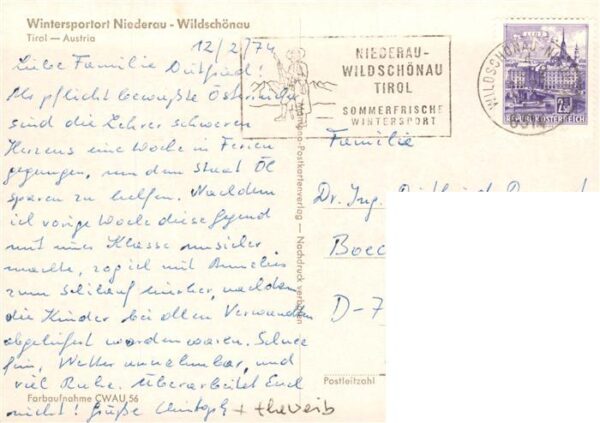 Wintersportort Niederau - Wildschönau
Tirol — Austria
12/2/74
Liebe Familie
Als pflichtbewußte Österreicher
sind die Lehrer schweren
Herzens eine Woche in Ferien
gegangen, um dem Staat Öl
sparen zu helfen. Nachdem
ich vorige Woche diese Gegend
mit einer Klasse unsicher
machte, zog ich mit
zum Schilauf hierher, nachdem
die Kinder bei allen Verwandten
abgeliefert worden waren. Schnee
fein, Wetter annehmbar, und
viel Ruhe. Überarbeitet Euch
nicht! Grüße Christoph +
Farbaufnahme CWAU 56
Postkartenverlag — Nachdruck verboten
NIEDERAU-
WILDSCHÖNAU
TIROL
SOMMERFRISCHE
WINTERSPORT
WILDSCHÖNAU
LINZ
2.50
REPUBLIK ÖSTERREICH
Familie
Dr. Ing.
Boec
D-7
Postleitzahl